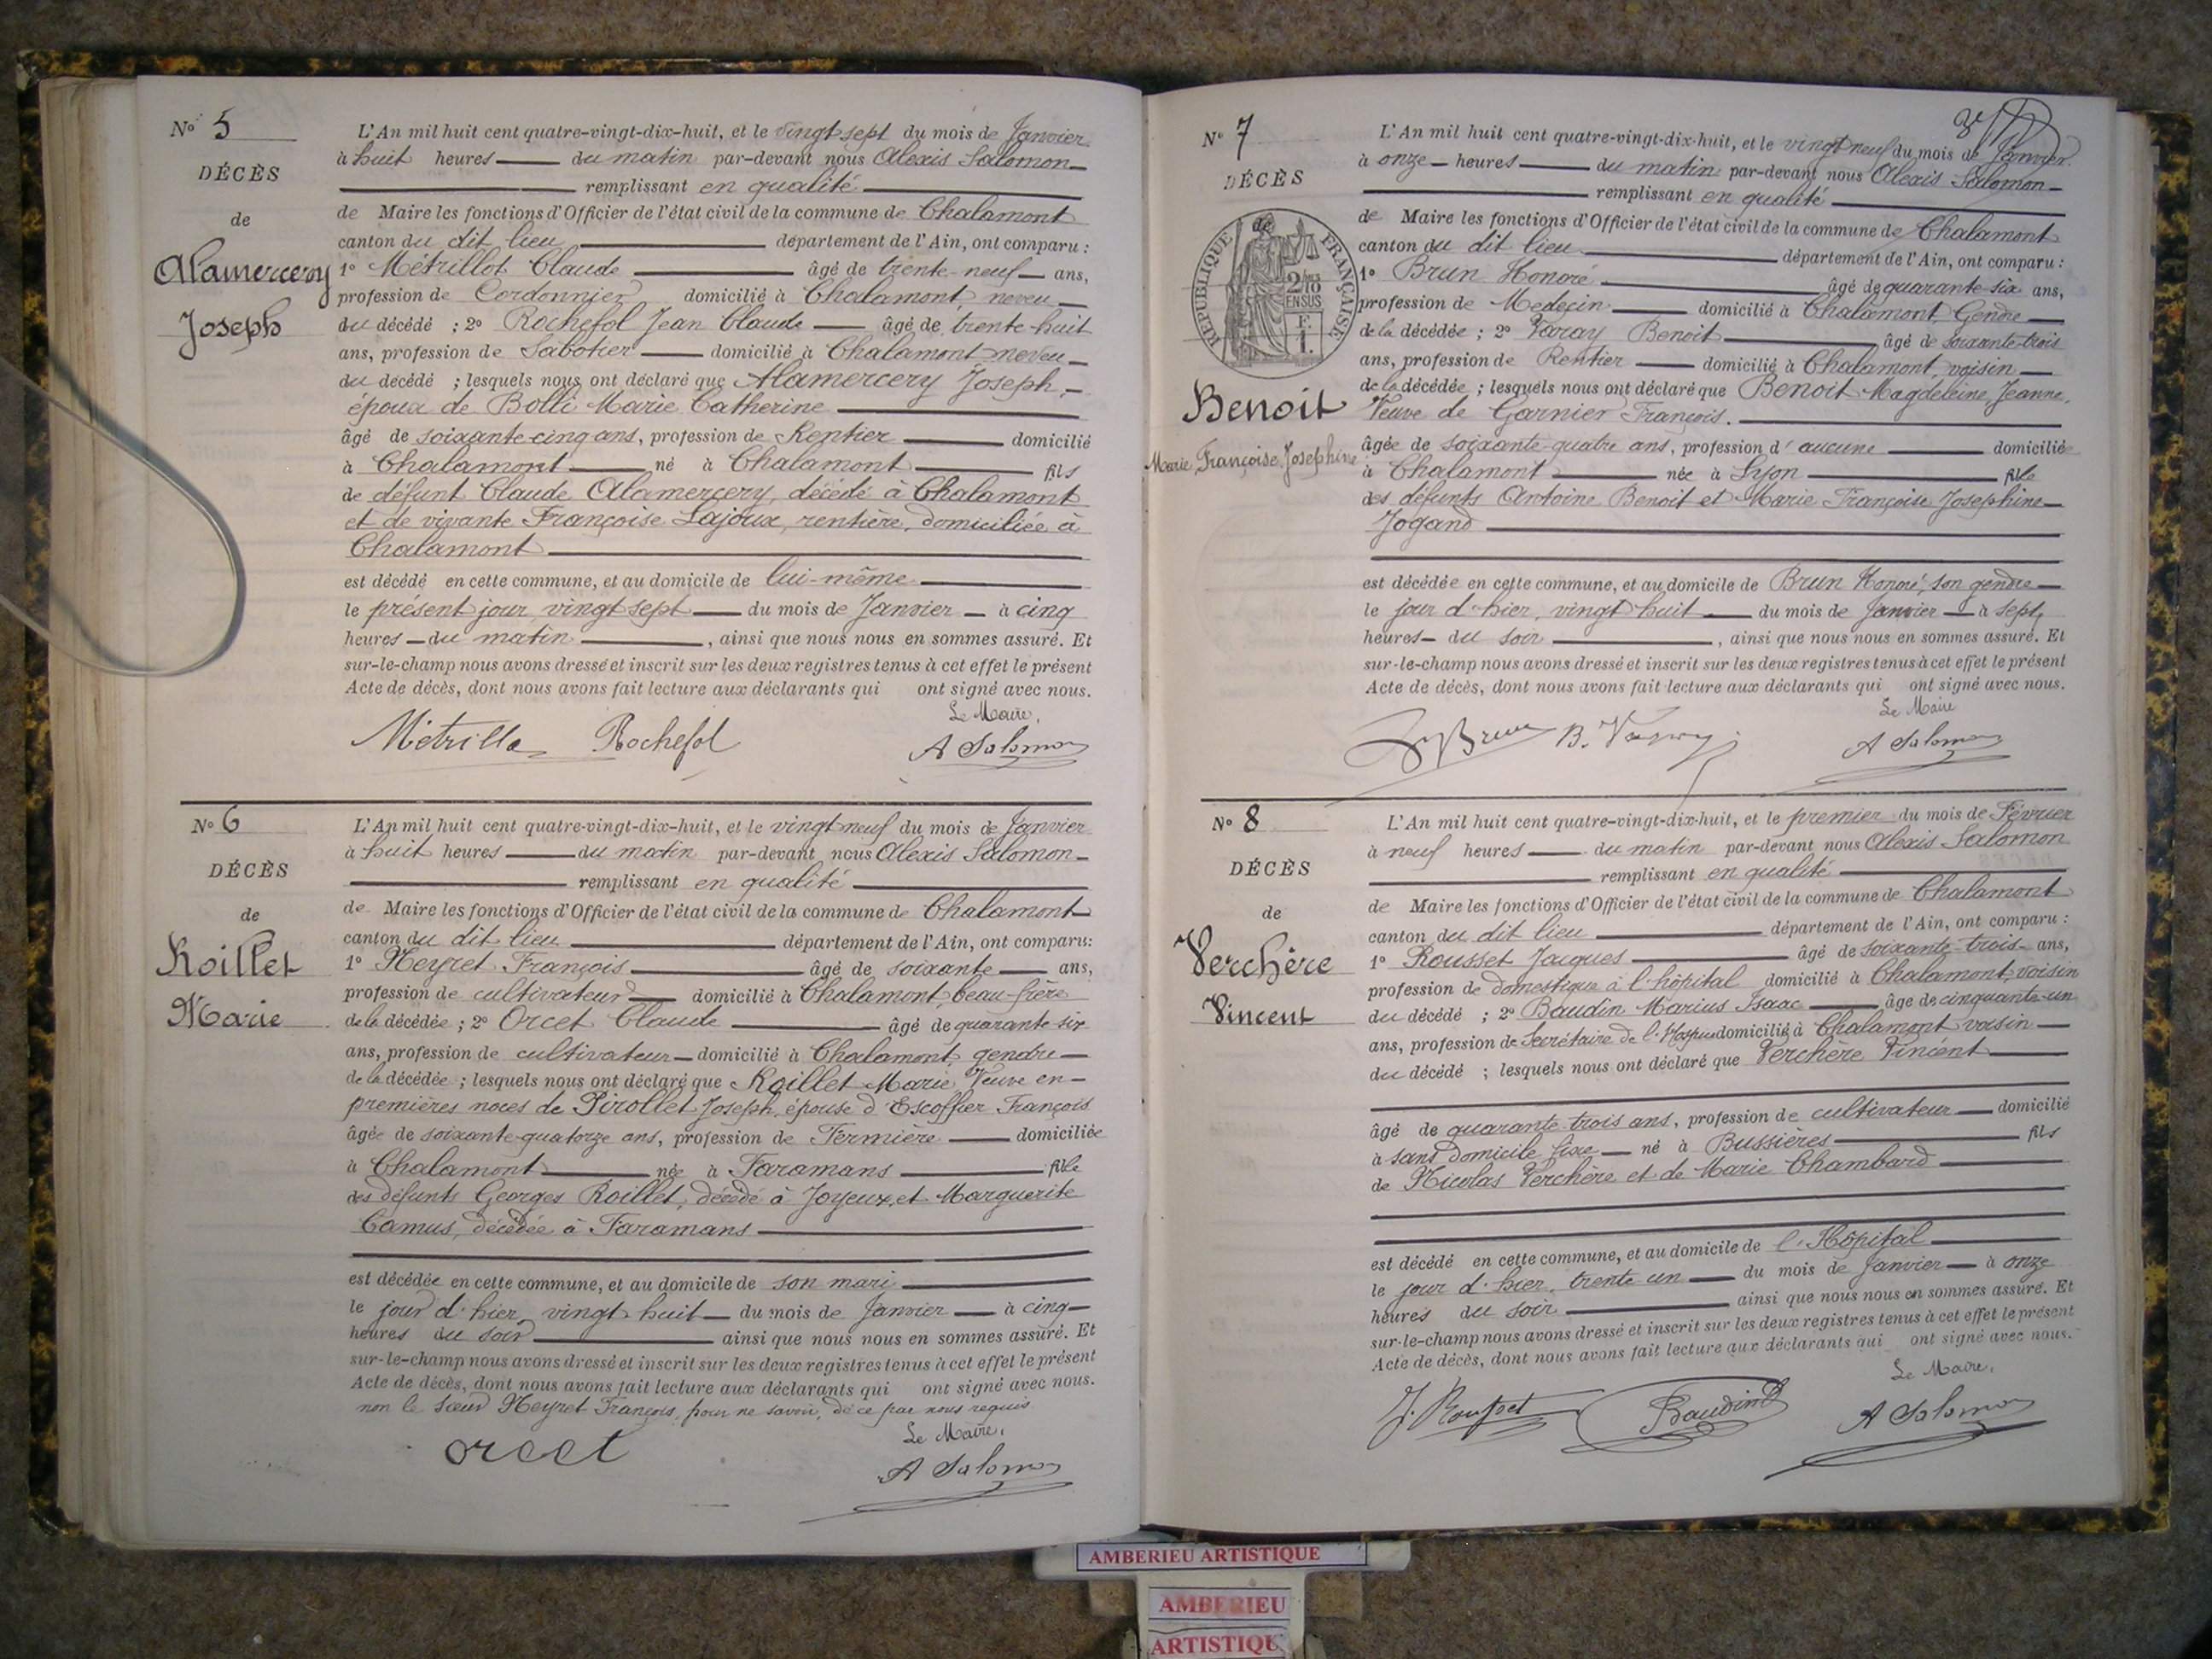 No 5
DÉCÈS
de
Alamercery
Joseph
L'An mil huit cent quatre-vingt-dix-huit, et le vingt sept du mois de Janvier
à huit heures du matin par-devant nous Alexis Salomon
remplissant en qualité
de Maire les fonctions d'Officier de l'état civil de la commune de Chalamont
canton du dit lieu département de l'Ain, ont comparu :
1o Métrillot Claude âgé de trente-neuf ans,
profession de Cordonnier domicilié à Chalamont, neveu
du décédé ; 2o Rochefol Jean Claude âgé de trente-huit
ans, profession de Sabotier domicilié à Chalamont neveu
du décédé ; lesquels nous ont déclaré que Alamercery Joseph,
époux de Bolli Marie Catherine
âgé de soixante-cinq ans, profession de Rentier domicilié
à Chalamont né à Chalamont fils
de défunt Claude Alamercery, décédé à Chalamont
et de vivante Françoise Lajoux, rentière, domiciliée à
Chalamont
est décédé en cette commune, et au domicile de lui-même
le présent jour, vingt sept du mois de Janvier à cinq
heures du matin, ainsi que nous nous en sommes assuré. Et
sur-le-champ nous avons dressé et inscrit sur les deux registres tenus à cet effet le présent
Acte de décès, dont nous avons fait lecture aux déclarants qui ont signé avec nous.
Le Maire,
Métrillo Rochefol A Salomon
No 6
DÉCÈS
de
Roillet
Marie
L'An mil huit cent quatre-vingt-dix-huit, et le vingt neuf du mois de Janvier
à huit heures du matin par-devant nous Alexis Salomon
remplissant en qualité
de Maire les fonctions d'Officier de l'état civil de la commune de Chalamont
canton du dit lieu département de l'Ain, ont comparu:
1o Neyret François âgé de soixante ans,
profession de cultivateur domicilié à Chalamont, beau-frère
de la décédée ; 2o Orcet Claude âgé de quarante six
ans, profession de cultivateur domicilié à Chalamont, gendre
de la décédée ; lesquels nous ont déclaré que Roillet Marie Veuve en
premières noces de Pirollet Joseph, épouse d'Escoffier François
âgée de soixante-quatorze ans, profession de Fermière domiciliée
à Chalamont née à Faramans fille
des défunts Georges Roillet, décédé à Joyeux, et Marguerite
Camus, décédée à Faramans
est décédée en cette commune, et au domicile de son mari
le jour d'hier, vingt huit du mois de Janvier à cinq
heures du soir ainsi que nous nous en sommes assuré. Et
sur-le-champ nous avons dressé et inscrit sur les deux registres tenus à cet effet le présent
Acte de décès, dont nous avons fait lecture aux déclarants qui ont signé avec nous.
non le sieur Neyret François, pour ne savoir, de ce par nous requis
Le Maire,
orcet A Salomon
No 7
DÉCÈS
de
RÉPUBLIQUE FRANÇAISE
2/10 EN SUS
Benoit
Marie, Françoise, Josephine
L'An mil huit cent quatre-vingt-dix-huit, et le vingt neuf du mois de Janvier
à onze heures du matin par-devant nous Alexis Salomon
remplissant en qualité
de Maire les fonctions d'Officier de l'état civil de la commune de Chalamont
canton du dit lieu département de l'Ain, ont comparu :
1o Brun Honoré âgé de quarante-six ans,
profession de Medecin domicilié à Chalamont, Gendre
de la décédée ; 2o Varay Benoit âgé de soixante-trois
ans, profession de Rentier domicilié à Chalamont, voisin
de la décédée ; lesquels nous ont déclaré que Benoit Magdeleine, Jeanne,
Veuve de Garnier François.
âgée de soixante-quatre ans, profession d'aucune domiciliée
à Chalamont née à Lyon fille
des défunts Antoine Benoit et Marie Françoise Josephine
Jogand
est décédée en cette commune, et au domicile de Brun Honoré, son gendre
le jour d'hier, vingt huit du mois de Janvier à sept
heures du soir, ainsi que nous nous en sommes assuré. Et
sur-le-champ nous avons dressé et inscrit sur les deux registres tenus à cet effet le présent
Acte de décès, dont nous avons fait lecture aux déclarants qui ont signé avec nous.
Le Maire
Brun B. Varay A Salomon
No 8
DÉCÈS
de
Verchère
Vincent
L'An mil huit cent quatre-vingt-dix-huit, et le premier du mois de Février
à neuf heures du matin par-devant nous Alexis Salomon
remplissant en qualité
de Maire les fonctions d'Officier de l'état civil de la commune de Chalamont
canton du dit lieu département de l'Ain, ont comparu :
1o Rousset Jacques âgé de soixante-trois ans,
profession de domestique à l'hôpital domicilié à Chalamont, voisin
du décédé ; 2o Baudin Marius Isaac âgé de cinquante-un
ans, profession de Secrétaire de l'Hospice domicilié à Chalamont voisin
du décédé ; lesquels nous ont déclaré que Verchère Vincent
âgé de quarante-trois ans, profession de cultivateur domicilié
à sans domicile fixe né à Bussières fils
de Nicolas Verchère et de Marie Chambard
est décédé en cette commune, et au domicile de l'Hôpital
le jour d'hier, trente un du mois de Janvier à onze
heures du soir ainsi que nous nous en sommes assuré. Et
sur-le-champ nous avons dressé et inscrit sur les deux registres tenus à cet effet le présent
Acte de décès, dont nous avons fait lecture aux déclarants qui ont signé avec nous.
Le Maire,
J. Rousset Baudin A Salomon
AMBERIEU ARTISTIQUE
AMBERIEU
ARTISTIQU